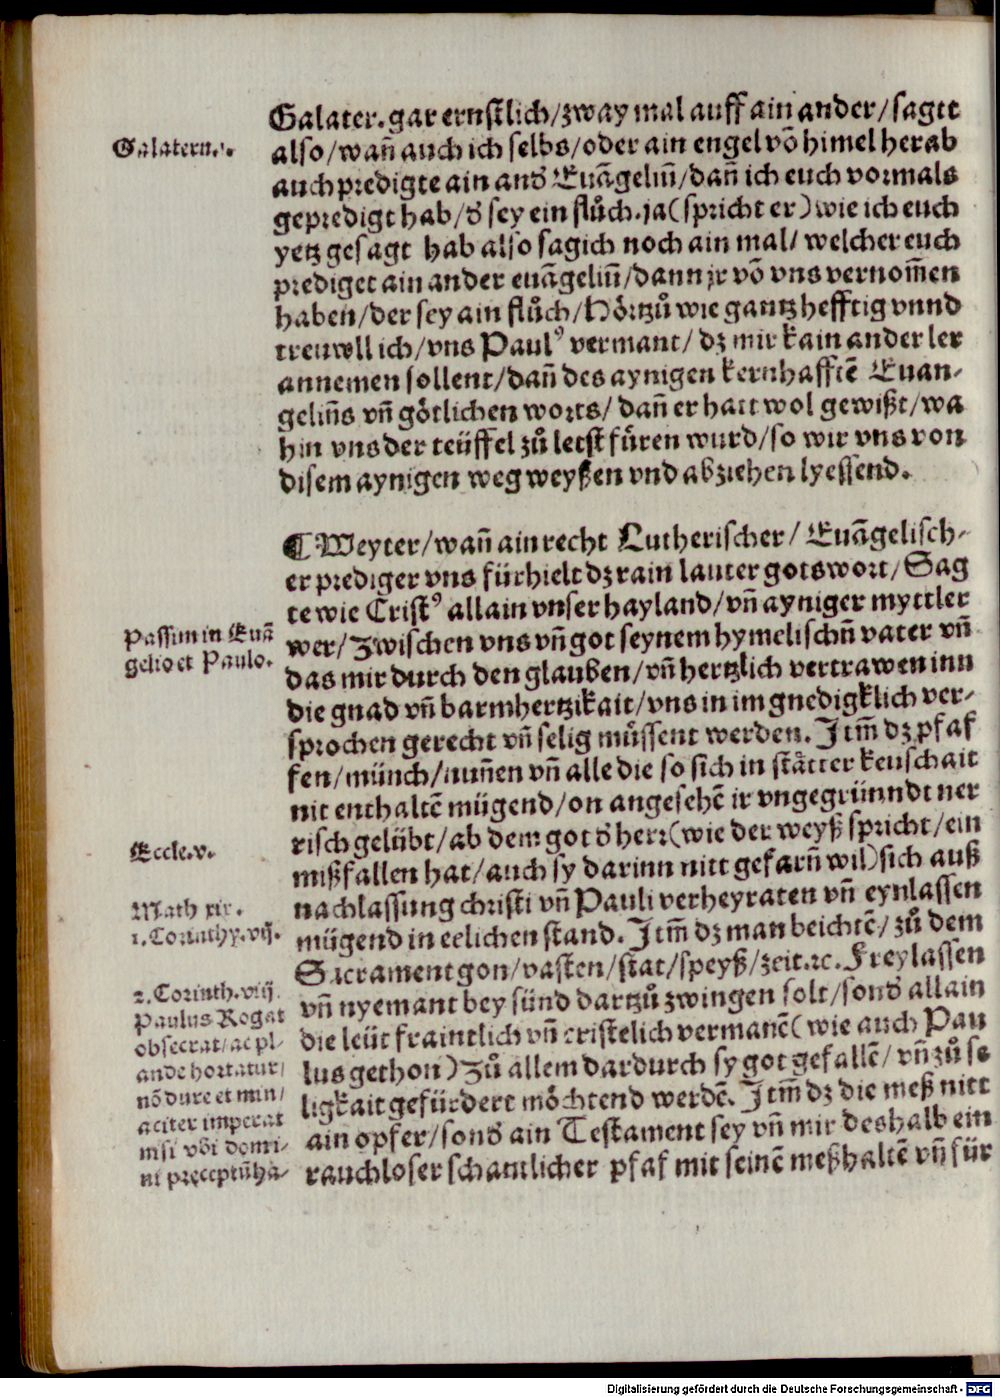 Galater. gar ernstlich/zway mal auff ain ander/sagtt
also/wañ auch ich selbs/oder ain engel võ himel herab
auch predigte ain and͛ Euãgeliũ/dañ ich euch vormals
gepredigt hab/d͛ sey ein flůch. ja (spricht er) wie ich euch
yetz gesagt hab also sag ich noch ain mal/ welcher euch
prediget ain ander euãgeliũ/dann jr võ vns vernom̃en
haben/der sey ain flůch/Hört zů wie gantz hefftig vnnd
treuwllich/vns Paulꝰ vermant/ dz mir kain ander ler
annemen sollent/dañ des aynigen kernhafftẽ Euan-
geliũs vñ götlichen worts/ dañ er hatt wol gewißt/wa
hin vns der teüffel zů letst füren wurd/so wir vns von
disem aynigen weg weyßen vnd abziehen lyessend.
¶ Weyter/wañ ain recht Lutherischer/ Euãgelisch-
er prediger vns fürhielt dz rain lauter gotswort/Sag
te wie Cristꝰ allain vnser hayland/vñ ayniger myttler
wer/Zwischen vns vñ got seynem hymelischñ vater vñ
das mir durch den glauben/vñ hertzlich vertrawen inn
die gnad vñ barmhertzikait/vns in im gnedigklich ver-
sprochen gerecht vñ selig müssent werden. Jtm̃ dz pfaf
fen/münch/nuñen vñ alle die so sich in stätter keuschait
nit enthaltẽ mügend/on angesehẽ ir vngegrünndt ner
risch gelübt/ab dem got d͛ herr (wie der weyß spricht/ein
mißfallen hat/auch sy darinn nitt gefarñ wil) sich auß
nachlassung christi vñ Pauli verheyraten vñ eynlassen
mügend in eelichen stand. Jtm̃ dz man beichtẽ/ zů dem
Sacrament gon/vasten/stat/speyß/zeit.ꝛc. Freylassen
vñ nyemant bey sünd dartzů zwingen solt/sond͛ allain
die leüt fraintlich vñ cristelich vermanẽ (wie auch Pau
lus gethon) Zů allem dardurch sy got gefallẽ/ vñ zů se
ligkait gefürdert möchtend werdẽ. Jtm̃ dz die meß nitt
ain opfer/sond͛ ain Testament sey vñ mir deshalb ein
rauchloser schantlicher pfaf mit seinẽ meßhaltẽ vñ für
Galatern.
Passim in Euã
gelio et Paulo.
Eccle.v.
Math xix.
1. Corinthy.vij.
2. Corinth.viij.
Paulus Rogat
obsecrat/ac pl-
ande hortatur/
nõ dure et min/
aciter imperat
nisi vbi domi-
ni preceptũ ha-
Digitalisierung gefördert durch die Deutsche Forschungsgemeinschaft - DFG